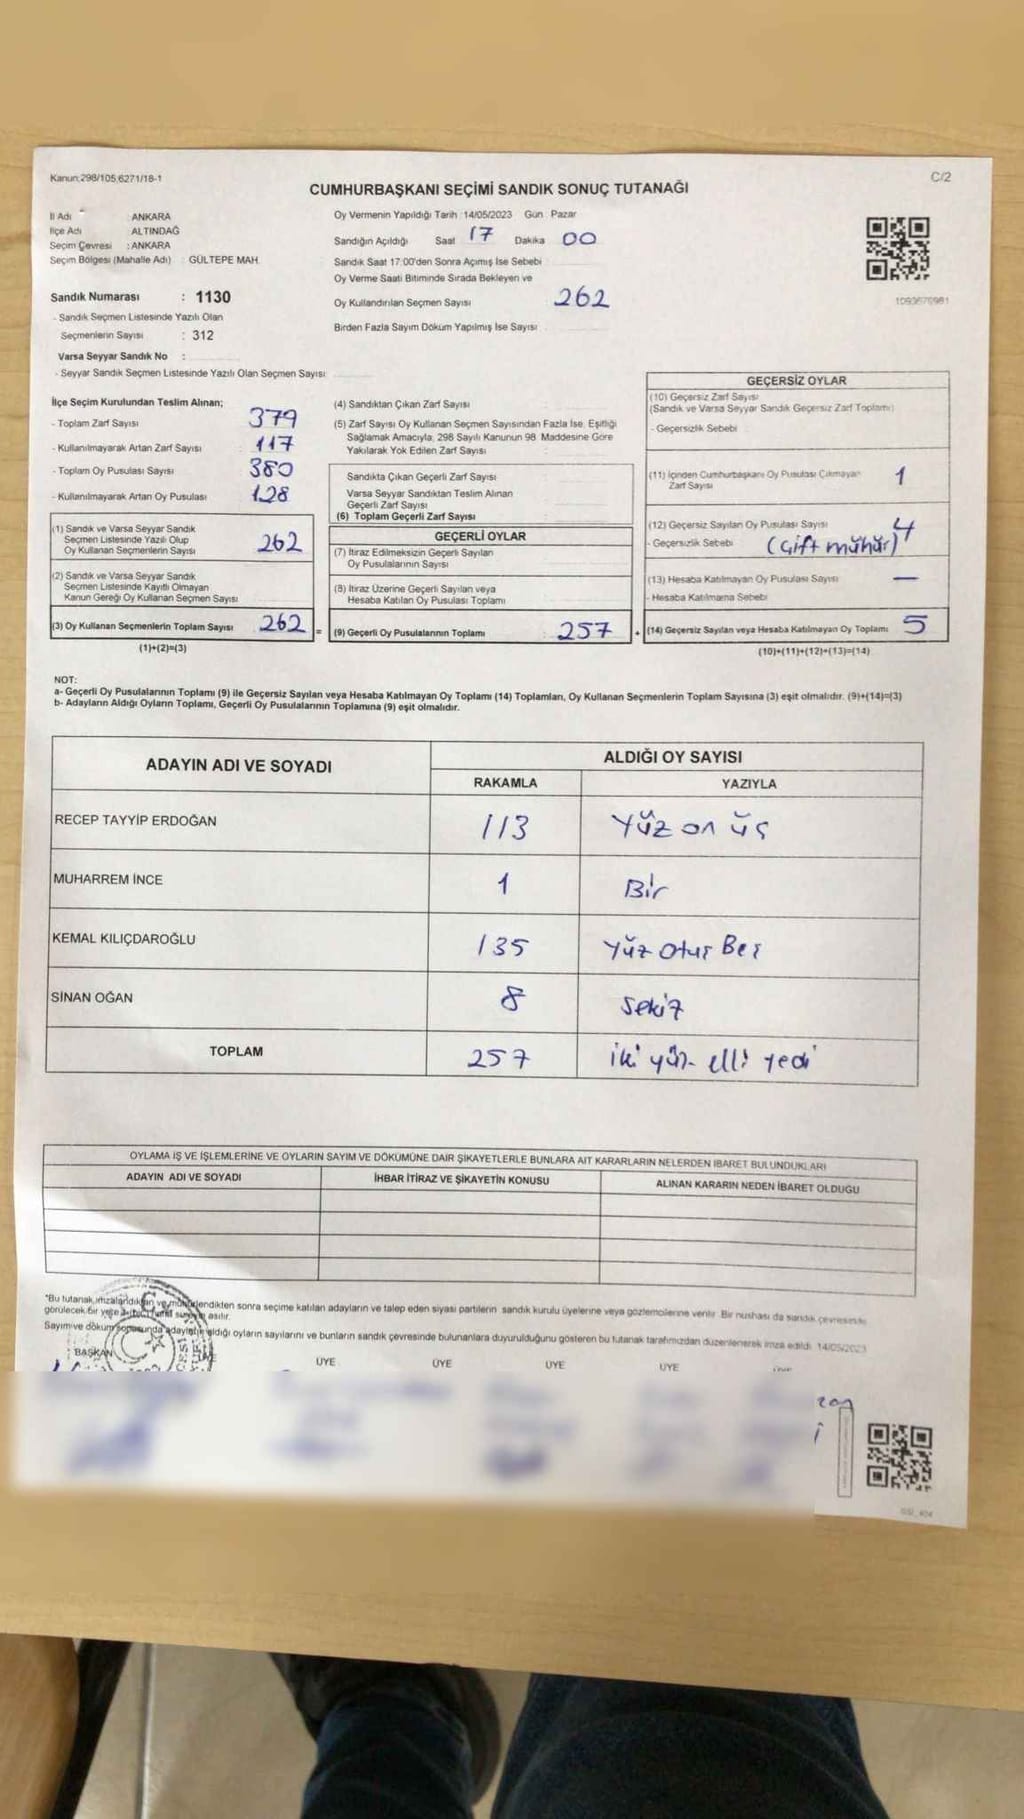 Kanun:298/105,6271/18-1
C/2
CUMHURBAŞKANI SEÇİMİ SANDIK SONUÇ TUTANAĞI
İl Adı : ANKARA
İlçe Adı : ALTINDAĞ
Seçim Çevresi : ANKARA
Seçim Bölgesi (Mahalle Adı) : GÜLTEPE MAH.
Oy Vermenin Yapıldığı Tarih : 14/05/2023 Gün : Pazar
Sandığın Açıldığı Saat 17 Dakika 00
Sandık Saat 17:00'den Sonra Açımış İse Sebebi :
Oy Verme Saati Bitiminde Sırada Bekleyen ve
Oy Kullandırılan Seçmen Sayısı 262
Birden Fazla Sayım Döküm Yapılmış İse Sayısı :
1093670981
Sandık Numarası : 1130
- Sandık Seçmen Listesinde Yazılı Olan
Seçmenlerin Sayısı : 312
Varsa Seyyar Sandık No :
- Seyyar Sandık Seçmen Listesinde Yazılı Olan Seçmen Sayısı:
İlçe Seçim Kurulundan Teslim Alınan;
- Toplam Zarf Sayısı 379
- Kullanılmayarak Artan Zarf Sayısı 117
- Toplam Oy Pusulası Sayısı 380
- Kullanılmayarak Artan Oy Pusulası 128
(1) Sandık ve Varsa Seyyar Sandık
Seçmen Listesinde Yazılı Olup
Oy Kullanan Seçmenlerin Sayısı 262
(2) Sandık ve Varsa Seyyar Sandık
Seçmen Listesinde Kayıtlı Olmayan
Kanun Gereği Oy Kullanan Seçmen Sayısı
(3) Oy Kullanan Seçmenlerin Toplam Sayısı 262 =
(1)+(2)=(3)
(4) Sandıktan Çıkan Zarf Sayısı :
(5) Zarf Sayısı Oy Kullanan Seçmen Sayısından Fazla İse, Eşitliği
Sağlamak Amacıyla, 298 Sayılı Kanunun 98. Maddesine Göre
Yakılarak Yok Edilen Zarf Sayısı
Sandıkta Çıkan Geçerli Zarf Sayısı
Varsa Seyyar Sandıktan Teslim Alınan
Geçerli Zarf Sayısı
(6) Toplam Geçerli Zarf Sayısı
GEÇERLİ OYLAR
(7) İtiraz Edilmeksizin Geçerli Sayılan
Oy Pusulalarının Sayısı
(8) İtiraz Üzerine Geçerli Sayılan veya
Hesaba Katılan Oy Pusulası Toplamı
(9) Geçerli Oy Pusulalarının Toplamı : 257 +
GEÇERSİZ OYLAR
(10) Geçersiz Zarf Sayısı
(Sandık ve Varsa Seyyar Sandık Geçersiz Zarf Toplamı)
- Geçersizlik Sebebi :
(11) İçinden Cumhurbaşkanı Oy Pusulası Çıkmayan
Zarf Sayısı 1
(12) Geçersiz Sayılan Oy Pusulası Sayısı 4
- Geçersizlik Sebebi (Çift mühür)
(13) Hesaba Katılmayan Oy Pusulası Sayısı —
- Hesaba Katılmama Sebebi
(14) Geçersiz Sayılan veya Hesaba Katılmayan Oy Toplamı 5
(10)+(11)+(12)+(13)=(14)
NOT:
a- Geçerli Oy Pusulalarının Toplamı (9) ile Geçersiz Sayılan veya Hesaba Katılmayan Oy Toplamı (14) Toplamları, Oy Kullanan Seçmenlerin Toplam Sayısına (3) eşit olmalıdır. (9)+(14)=(3)
b- Adayların Aldığı Oyların Toplamı, Geçerli Oy Pusulalarının Toplamına (9) eşit olmalıdır.
ADAYIN ADI VE SOYADI
ALDIĞI OY SAYISI
RAKAMLA YAZIYLA
RECEP TAYYİP ERDOĞAN 113 Yüz on üç
MUHARREM İNCE 1 Bir
KEMAL KILIÇDAROĞLU 135 Yüz otuz Beş
SİNAN OĞAN 8 Sekiz
TOPLAM 257 iki yüz elli yedi
OYLAMA İŞ VE İŞLEMLERİNE VE OYLARIN SAYIM VE DÖKÜMÜNE DAİR ŞİKAYETLERLE BUNLARA AİT KARARLARIN NELERDEN İBARET BULUNDUKLARI
ADAYIN ADI VE SOYADI İHBAR İTİRAZ VE ŞİKAYETİN KONUSU ALINAN KARARIN NEDEN İBARET OLDUĞU
*Bu tutanak imzalandıktan ve mühürlendikten sonra seçime katılan adayların ve talep eden siyasi partilerin sandık kurulu üyelerine veya gözlemcilerine verilir. Bir nushası da sandık çevresinde
görülecek bir yere asılır.
Sayım ve döküm sonunda adayların aldığı oyların sayılarını ve bunların sandık çevresinde bulunanlara duyurulduğunu gösteren bu tutanak tarafımızdan düzenlenerek imza edildi. 14/05/2023
BAŞKAN ÜYE ÜYE ÜYE ÜYE ÜYE